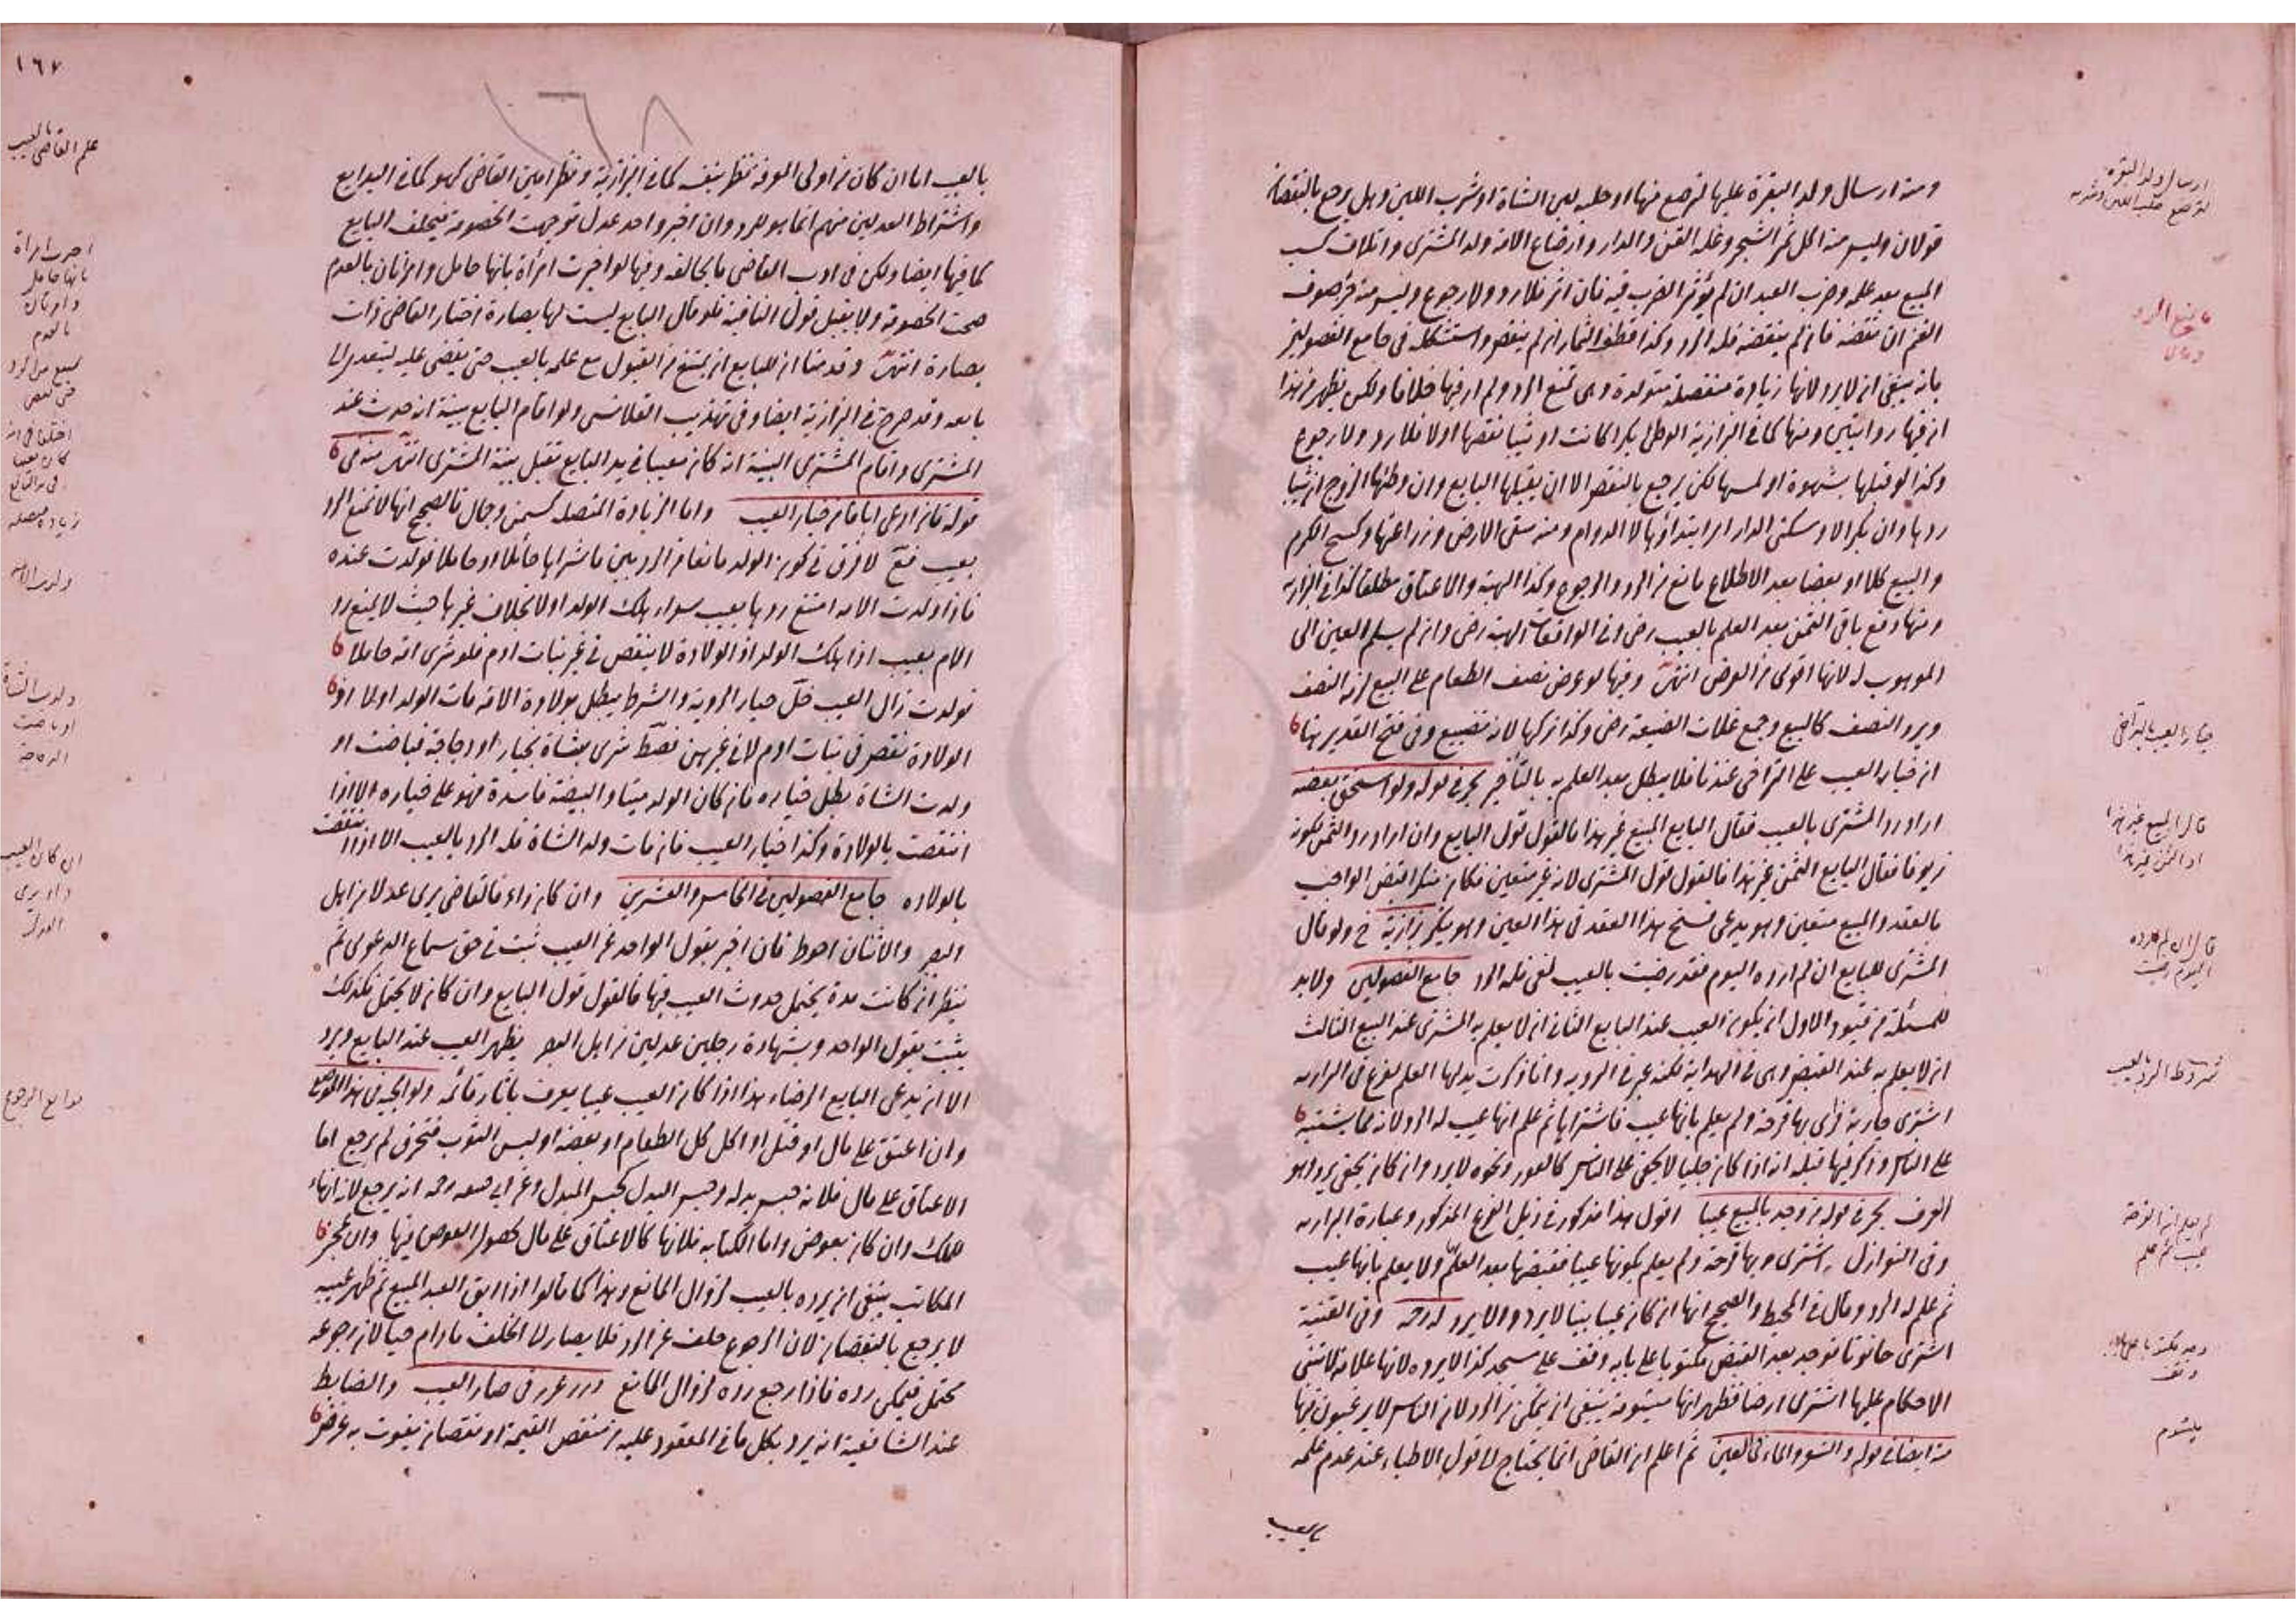 ومنه ارسال ولد البقرة عليها لترضع منها او حلب لبن الشاة او شرب اللبن وهل يرجع بالنقصان
قولان وليس منه اكل ثمر الشجر وغلة القن والدار وارضاع الامة ولد المشتري واتلاف كسب
المبيع بعد علمه وضرب العبد ان لم يؤثر الضرب فيه فان اثر فلا رد ولا رجوع وليس منه جز صوف
الغنم ان نقصه فان لم ينقصه فله الرد وكذا قطف الثمار ان لم ينقص واستشكله في جامع الفصولين
بانه ينبغي ان لا يرد لانها زيادة منفصلة متولدة وهي تمنع الرد ولم ار فيها خلافا ولكن يظهر من هذا
ان فيها روايتين ومنها كما في البزازية الوطئ بكرا كانت او ثيبا نقصها اولا فلا رد ولا رجوع
وكذا لو قبلها بشهوة او لمسها لكن يرجع بالنقص الا ان يقبلها البايع وان وطئها الزوج ان ثيبا
ردها وان بكرا لا وسكنى الدار اي ابتداؤها لا الدوام ومنه سقى الارض وزراعتها وكسح الكرم
والبيع كلا او بعضا بعد الاطلاع مانع من الرد والرجوع وكذا الهبة والاعتاق مطلقا كذا في البزازية
ومنها دفع باقي الثمن بعد العلم بالعيب رضى وفي الواقعات الهبة رضى وان لم يسلم العين الى
الموهوب له لانها اقوى من العرض انتهى وفيها لو عرض نصف الطعام على البيع لزمه النصف
ويرد النصف كالبيع وجمع غلات الضيعة رضى وكذا تركها لانه تضييع وفي فتح القدير هنا
ان خيار العيب على التراخي عندنا فلا يبطل بعد العلم به بالتأخير بحر في قوله ولو استحق بعضه
اراد رد المشتري بالعيب فقال البايع المبيع غير هذا فالقول قول البايع وان اراد رد الثمن لكونه
زيوفا فقال البايع الثمن غير هذا فالقول قول المشتري لانه غير متعين فكان منكرا قبض الواجب
بالعقد والمبيع متعين وهو يدعي فسخ هذا العقد في هذا العين وهو ينكر بزازية في ولو قال
المشتري للبايع ان لم ارده اليوم فقد رضيت بالعيب لغى فله الرد جامع الفصولين ولا بد
للمسئلة من قيود الاول ان يكون العيب عند البايع الثاني ان لا يعلم به المشتري عند البيع الثالث
ان لا يعلم به عند القبض وهي في الهداية لكنه عبر في الروية وانا ذكرت بدلها العلم لفرع في البزازية
اشترى جارية فرأى بها قرحة ولم يعلم بانها عيب فاشتراها ثم علم انها عيب له الرد لانه مما يشتبه
على الناس وذكر فيها قبله انه اذا كان جليا لا يخفى على الناس كالعور ونحوه لا يرد وان كان يخفى يرد وهو
العرف بحر في قوله من وجد بالمبيع عيبا اقول هذا مذكور في ذيل الفرع المذكور وعبارة البزازية
وفي النوازل اشترى وبها قرحة ولم يعلم بكونها عيبا فقبضها بعد العلم ولا يعلم بانها عيب
ثم علم له الرد وقال في المحيط والصحيح انها ان كان عيبا بينا لا يرد والا يرد وفي القنية
اشترى حانوتا فوجد بعد القبض مكتوبا على بابه وقف على مسجد كذا لا يرده لانها علامة لا تبنى
الاحكام عليها اشترى ارضا فظهر انها ميشومة ينبغي ان يتمكن من الرد لان الناس لا يرغبون فيها
منه ايضا في قوله والشعر والماء في العين ثم اعلم ان القاضي انما يحتاج الى قول الاطباء عند عدم علمه
بالعيب
ارسال ولد البقرة
مانع الرد
خيار العيب بالتراخي
قال المبيع غير هذا
او الثمن غير هذا
قال ان لم ارده
اليوم رضيت
شروط الرد بالعيب
عيب ثم علم
وقف
ميشوم
١٦٧
١٦٨
بالعيب اما ان كان من اولي المعرفة ينظر بنفسه كما في البزازية ونظر امين القاضي كهو كما في البدايع
واشتراط العدلين منهم انما هو للرد وان اخبر واحد عدل توجهت الخصومة فيحلف البايع
كما فيها ايضا ولكن في ادب القاضي ما يخالفه وفيها لو اخبرت امرأة بانها حامل وامرأتان بالعدم
صحت الخصومة ولا يقبل قول النافية فلو قال البايع ليست لها بصارة اختار القاضي ذات
بصارة انتهى وقدمنا ان للبايع ان يمتنع من القبول مع علمه بالعيب حتى يقضى عليه ليتعدى الى
بايعه وقد صرح في البزازية ايضا وفي تهذيب القلانسي ولو اقام البايع بينة انه حدث عند
المشتري واقام المشتري البينة انه كان معيبا في يد البايع تقبل بينة المشتري انتهى منه في
قوله فان ادعى اباقا من خيار العيب واما الزيادة المتصلة كسمن وجمال فالصحيح انها لا تمنع الرد
بعيب فتح لا فرق في كون الولد مانعا من الرد بين ما شراها حائلا او حاملا فولدت عنده
فاذا ولدت الامة امتنع ردها بعيب سواء هلك الولد اولا بخلاف غيرها حيث لا يمنع رد
الام بعيب اذا هلك الولد اذ الولادة لا ينقص في غير بنات ادم فلو شرى امة حاملا
فولدت زال العيب خيار الروية والشرط يبطل بولادة الامة مات الولد اولا اذ
الولادة نقص في بنات ادم لا في غيرهن شرى شاة بخيار او دجاجة فباضت او
ولدت الشاة بطل خياره فان كان الولد ميتا والبيضة فاسدة فهو على خياره الا اذا
انتقصت بالولادة وكذا خيار العيب فان مات ولد الشاة فله الرد بالعيب الا اذا انتقصت
بالولادة جامع الفصولين في الخامس والعشرين وان كان داء فالقاضي يرى عدلا من اهل
البصر والاثنان احوط فان اخبر بقول الواحد عن العيب ثبت في حق سماع الدعوى ثم
ينظر ان كانت مدة يحتمل حدوث العيب فيها فالقول قول البايع وان كان لا يحتمل فكذلك
يثبت بقول الواحد وبشهادة رجلين عدلين من اهل البصر يظهر العيب عند البايع ويرد
الا ان يدعي البايع الرضاء هذا اذا كان العيب عيبا يعرف باثار قائمة
وان اعتق على مال او قتل او اكل كل الطعام او بعضه او لبس الثوب فتخرق لم يرجع اما
الاعتاق على مال فلانه حبس بدله وحبس البدل كحبس المبدل وعن ابي حنيفة رحمه انه يرجع لانه انهاء
للملك وان كان بعوض واما الكتابة فلانها كالاعتاق على مال لحصول العوض فيها وان عجز
المكاتب ينبغي ان يرده بالعيب لزوال المانع وهذا كما قالوا اذا ابق العبد المبيع ثم ظهر عيبه
لا يرجع بالنقصان لان الرجوع خلف عن الرد فلا يصار الى الخلف ما دام حيا لان رجوعه
محتمل فيمكن رده فاذا رجع رده لزوال المانع درر غرر في خيار العيب والضابط
عند الشافعية انه يرد بكل ما في المعقود عليه من منقص القيمة او نقصان يفوت به غرض
علم القاضي بالعيب
اخبرت امرأة
بانها حامل
وامرأتان
بالعدم
زيادة متصلة
ولدت الامة
ولدت الشاة
او باضت
الدجاجة
ان كان العيب
موانع الرجوع